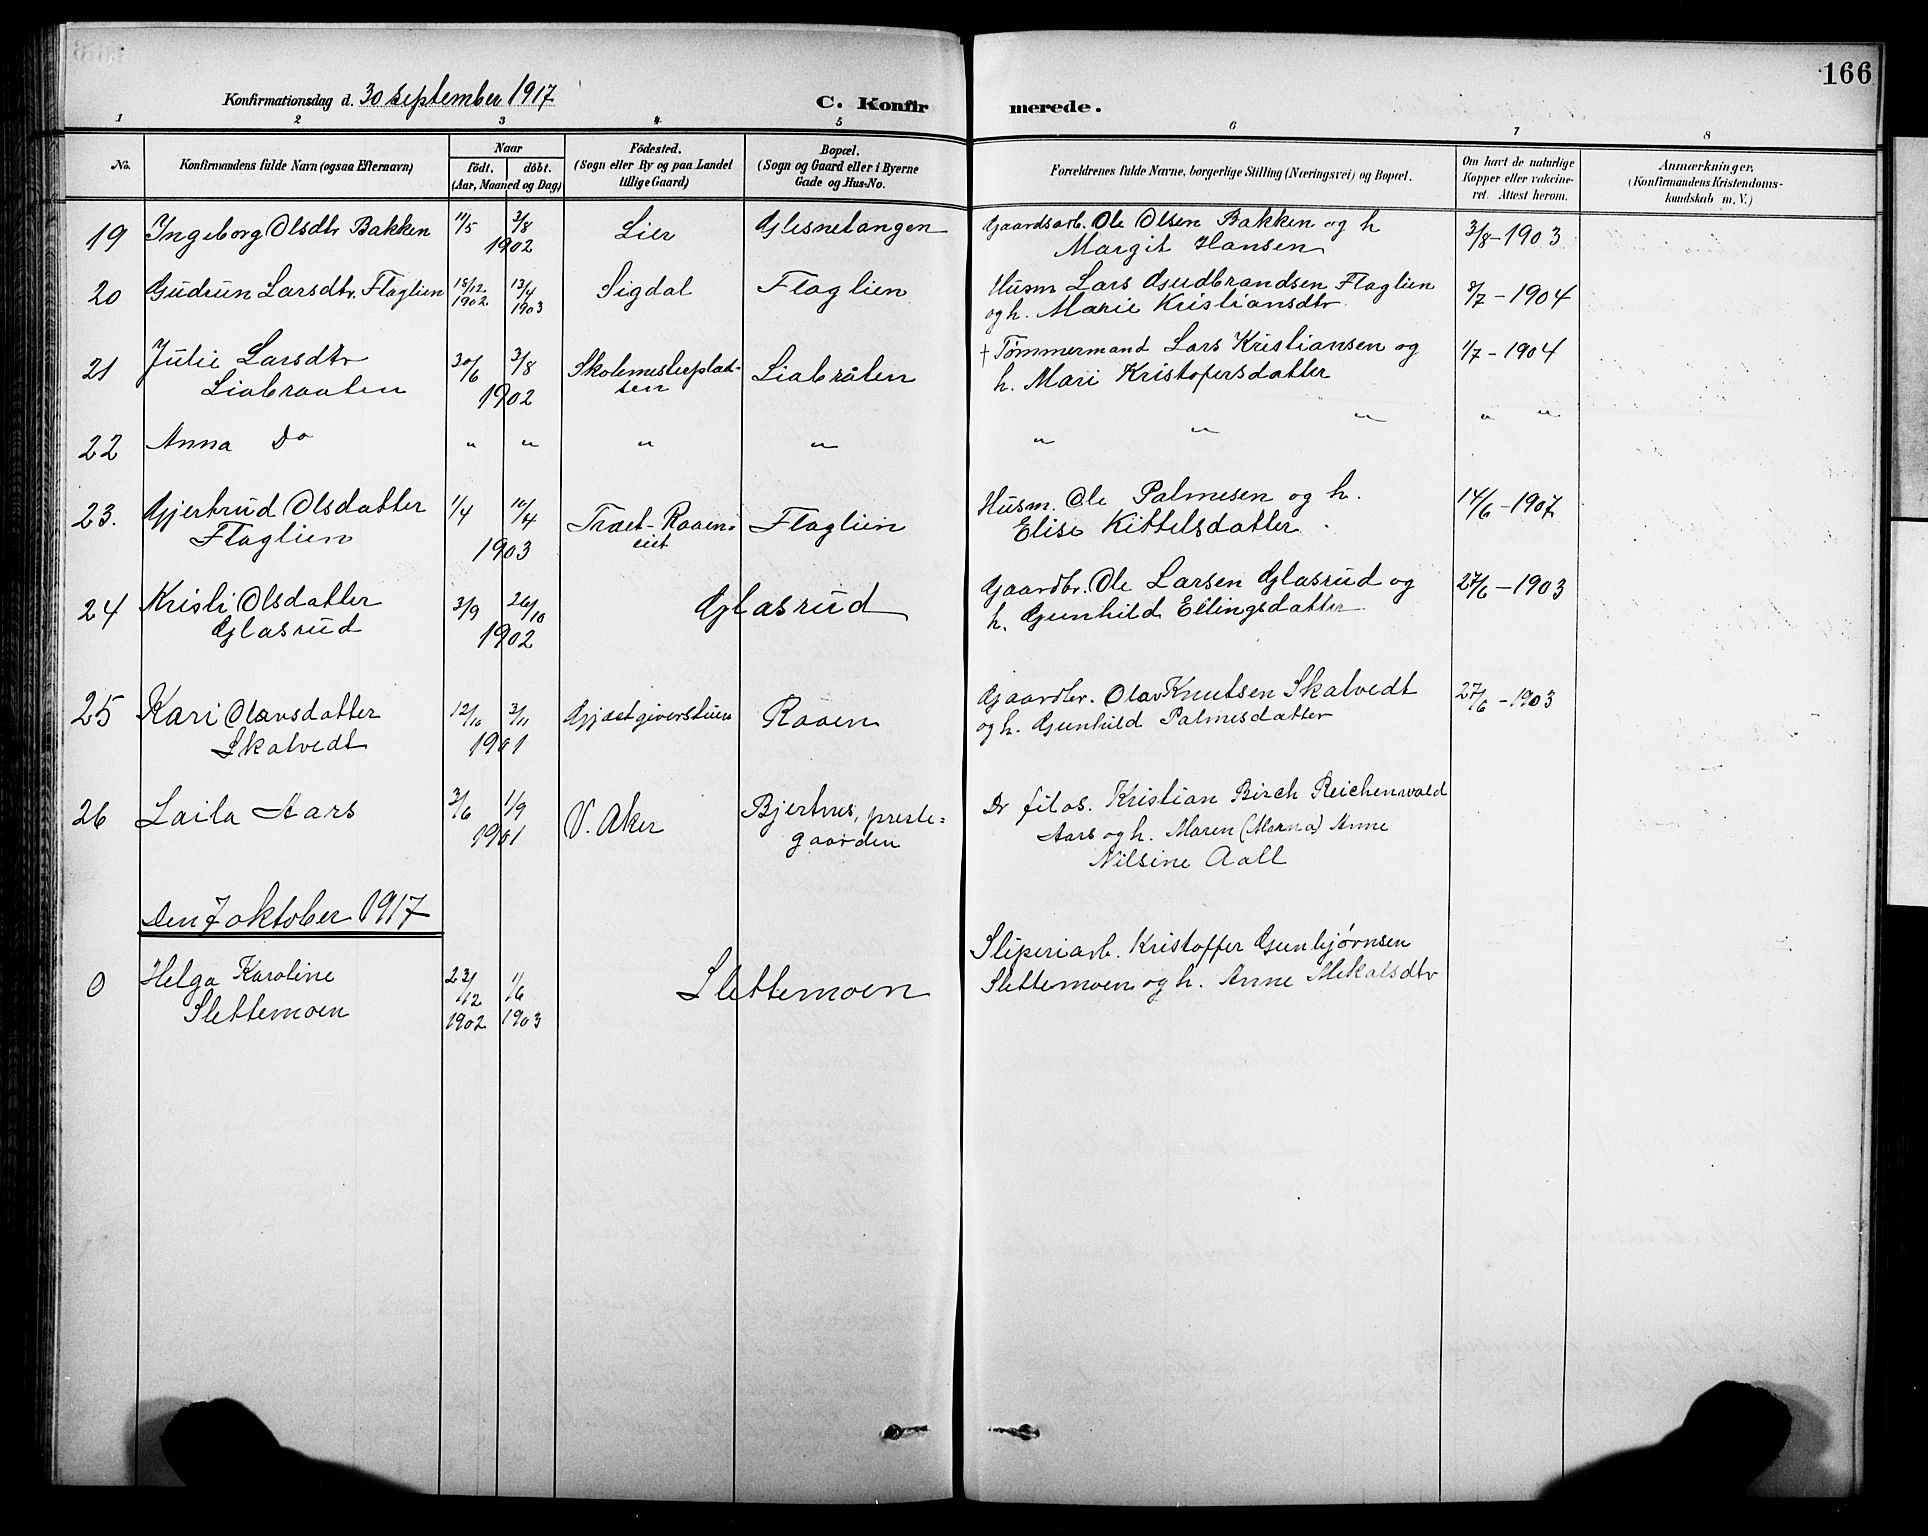 166
Konfirmationsdag d. 30 september 1917
C. Konfirmerede.
1 2 3 4 5 6 7 8
No.
Konfirmandens fulde Navn (ogsaa Efternavn)
Naar
födt. döbt.
(Aar, Maaned og Dag)
Födested.
(Sogn eller By og paa Landet
tillige Gaard)
Bopæl.
(Sogn og Gaard eller i Byerne
Gade og Hus-No.
Forældrenes fulde Navne, borgerlige Stilling (Næringsvei) og Bopæl.
Om havt de naturlige
Kopper eller vakcine-
ret. Attest herom.
Anmærkninger.
(Konfirmandens Kristendoms-
kundskab m. V.)
19 Ingeborg Olsdtr Bakken 11/5 3/8 Lier Glesnetangen Gaardsarb. Ole Olsen Bakken og h 3/8-1903
1902 Margit Hansen
20 Gudrun Larsdtr. Flaglien 18/12 13/4 Sigdal Flaglien Husm Lars Gudbrandsen Flaglien 8/7-1904
1902 1903 og h. Marie Kristiansdtr
21 Julie Larsdtr 30/6 3/8 Skolemesterplad- Liabråten † Tømmermand Lars Kristiansen og 1/7-1904
Liabraaten 1902 sen h. Mari Kristofersdatter
22 Anna Do " " " " " " " " "
23. Gjertrud Olsdatter 1/4 10/4 Træet-Raaen- Flaglien Husm. Ole Palmesen og h. 14/6-1907
Flaglien 1903 eiet Elise Kittelsdatter
24 Kristi Olsdatter 3/9 26/10 Glasrud Gaardbr. Ole Larsen Glasrud og 27/6-1903
Glasrud 1902 h. Gunhild Ellingsdatter
25 Kari Olavsdatter 12/10 3/11 Gjæstgiverstuen Raaen Gaardbr. Olav Knutsen Skalvedt 27/6-1903
Skatvedt 1901 og h. Gunhild Palmesdatter
26 Laila Aars 3/6 1/9 V. Aker Bjertnes, preste- Dr filos. Kristian Birch Reichenwald
1901 gaarden Aars og h. Maren (Marna) Anne
Nilsine Aall
Den 7 oktober 1917
0 Helga Karoline 23/12 1/6 Slettemoen Sliperiarb. Kristoffer Gunbjørnsen
Slettemoen 1902 1903 Slettemoen og h. Anne Mikalsdtr